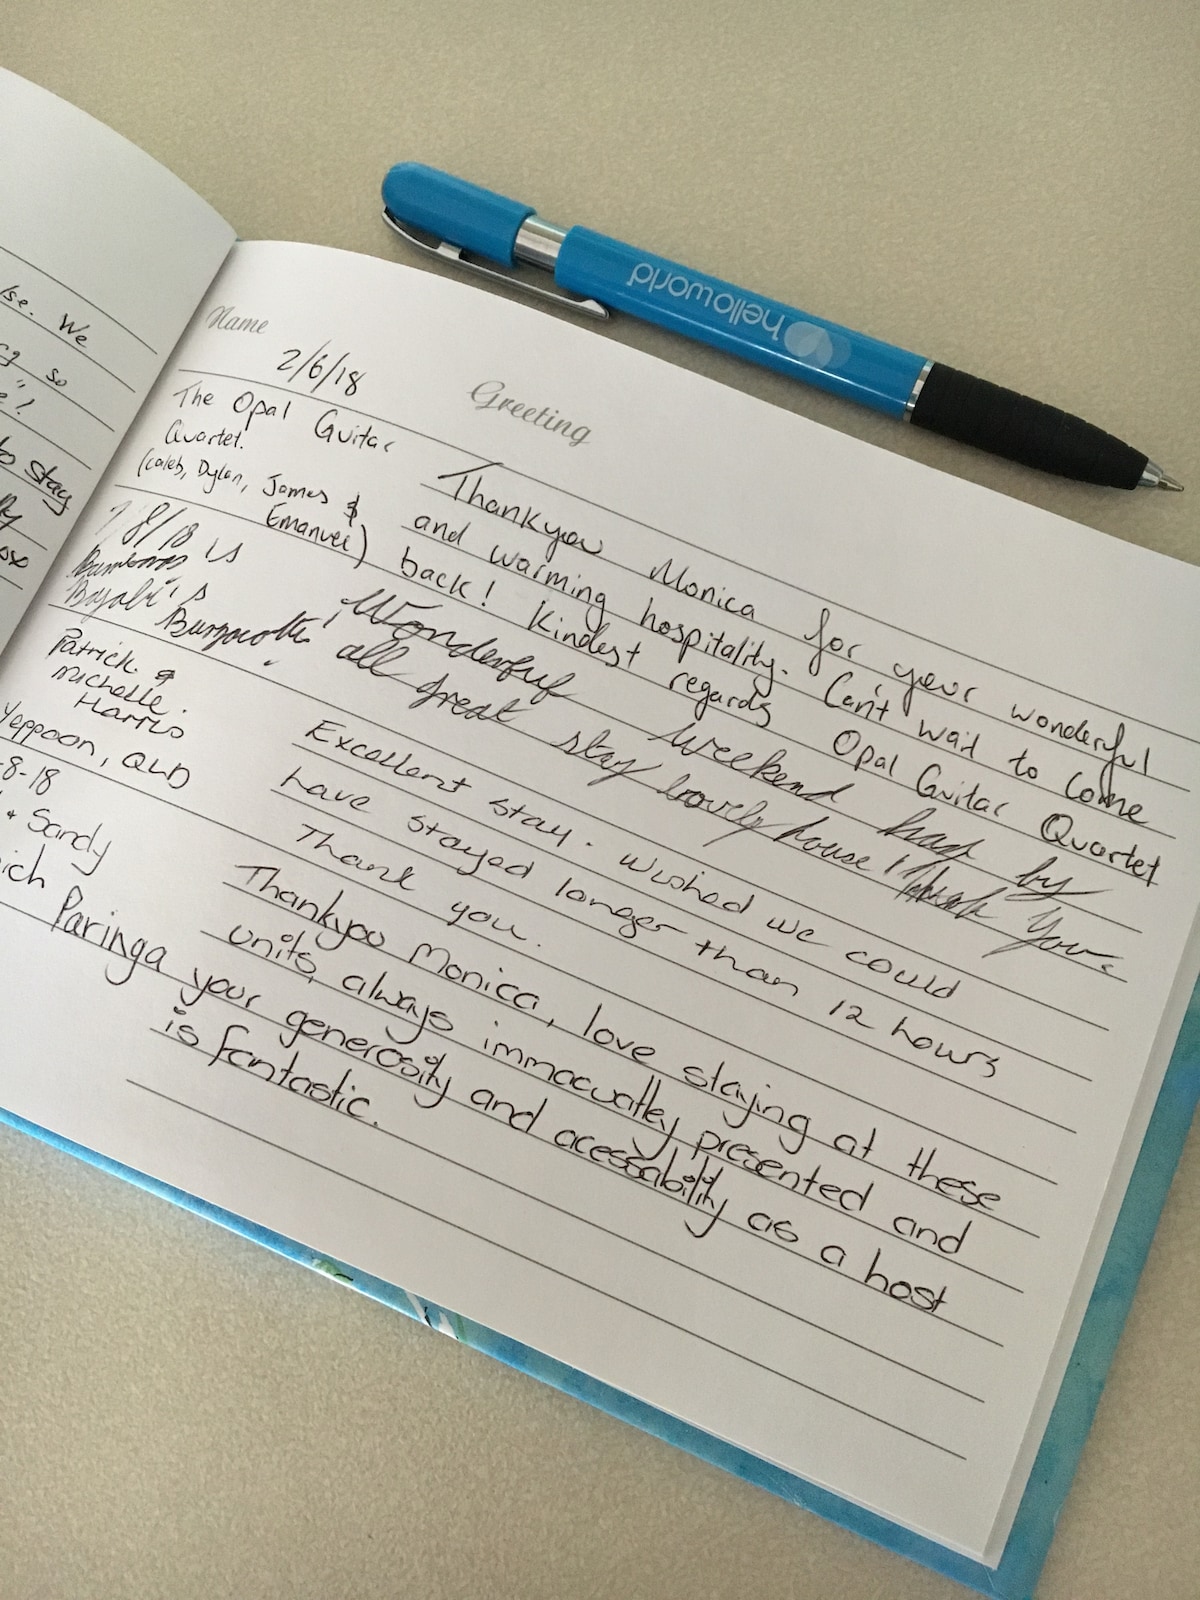 lse. We
so
to stay
Name
Greeting
2/6/18
The Opal Guitar
Quartet.
(Caleb, Dylan, James &
Emanuel)
Thankyou Monica for your wonderful
and warming hospitality. Can't wait to come
back! Kindest regards Opal Guitar Quartet
8/18
Wonderful weekend had by
all great stay lovely house Thank You.
Patrick &
Michelle.
Harris
Yeppoon, QLD
Excellent stay. Wished we could
have stayed longer than 12 hours
Thank you.
-8-18
+ Sandy
ich
Paringa
Thankyou Monica, love staying at these
units, always immacuatley presented and
your generosity and acessability as a host
is fantastic.
helloworld